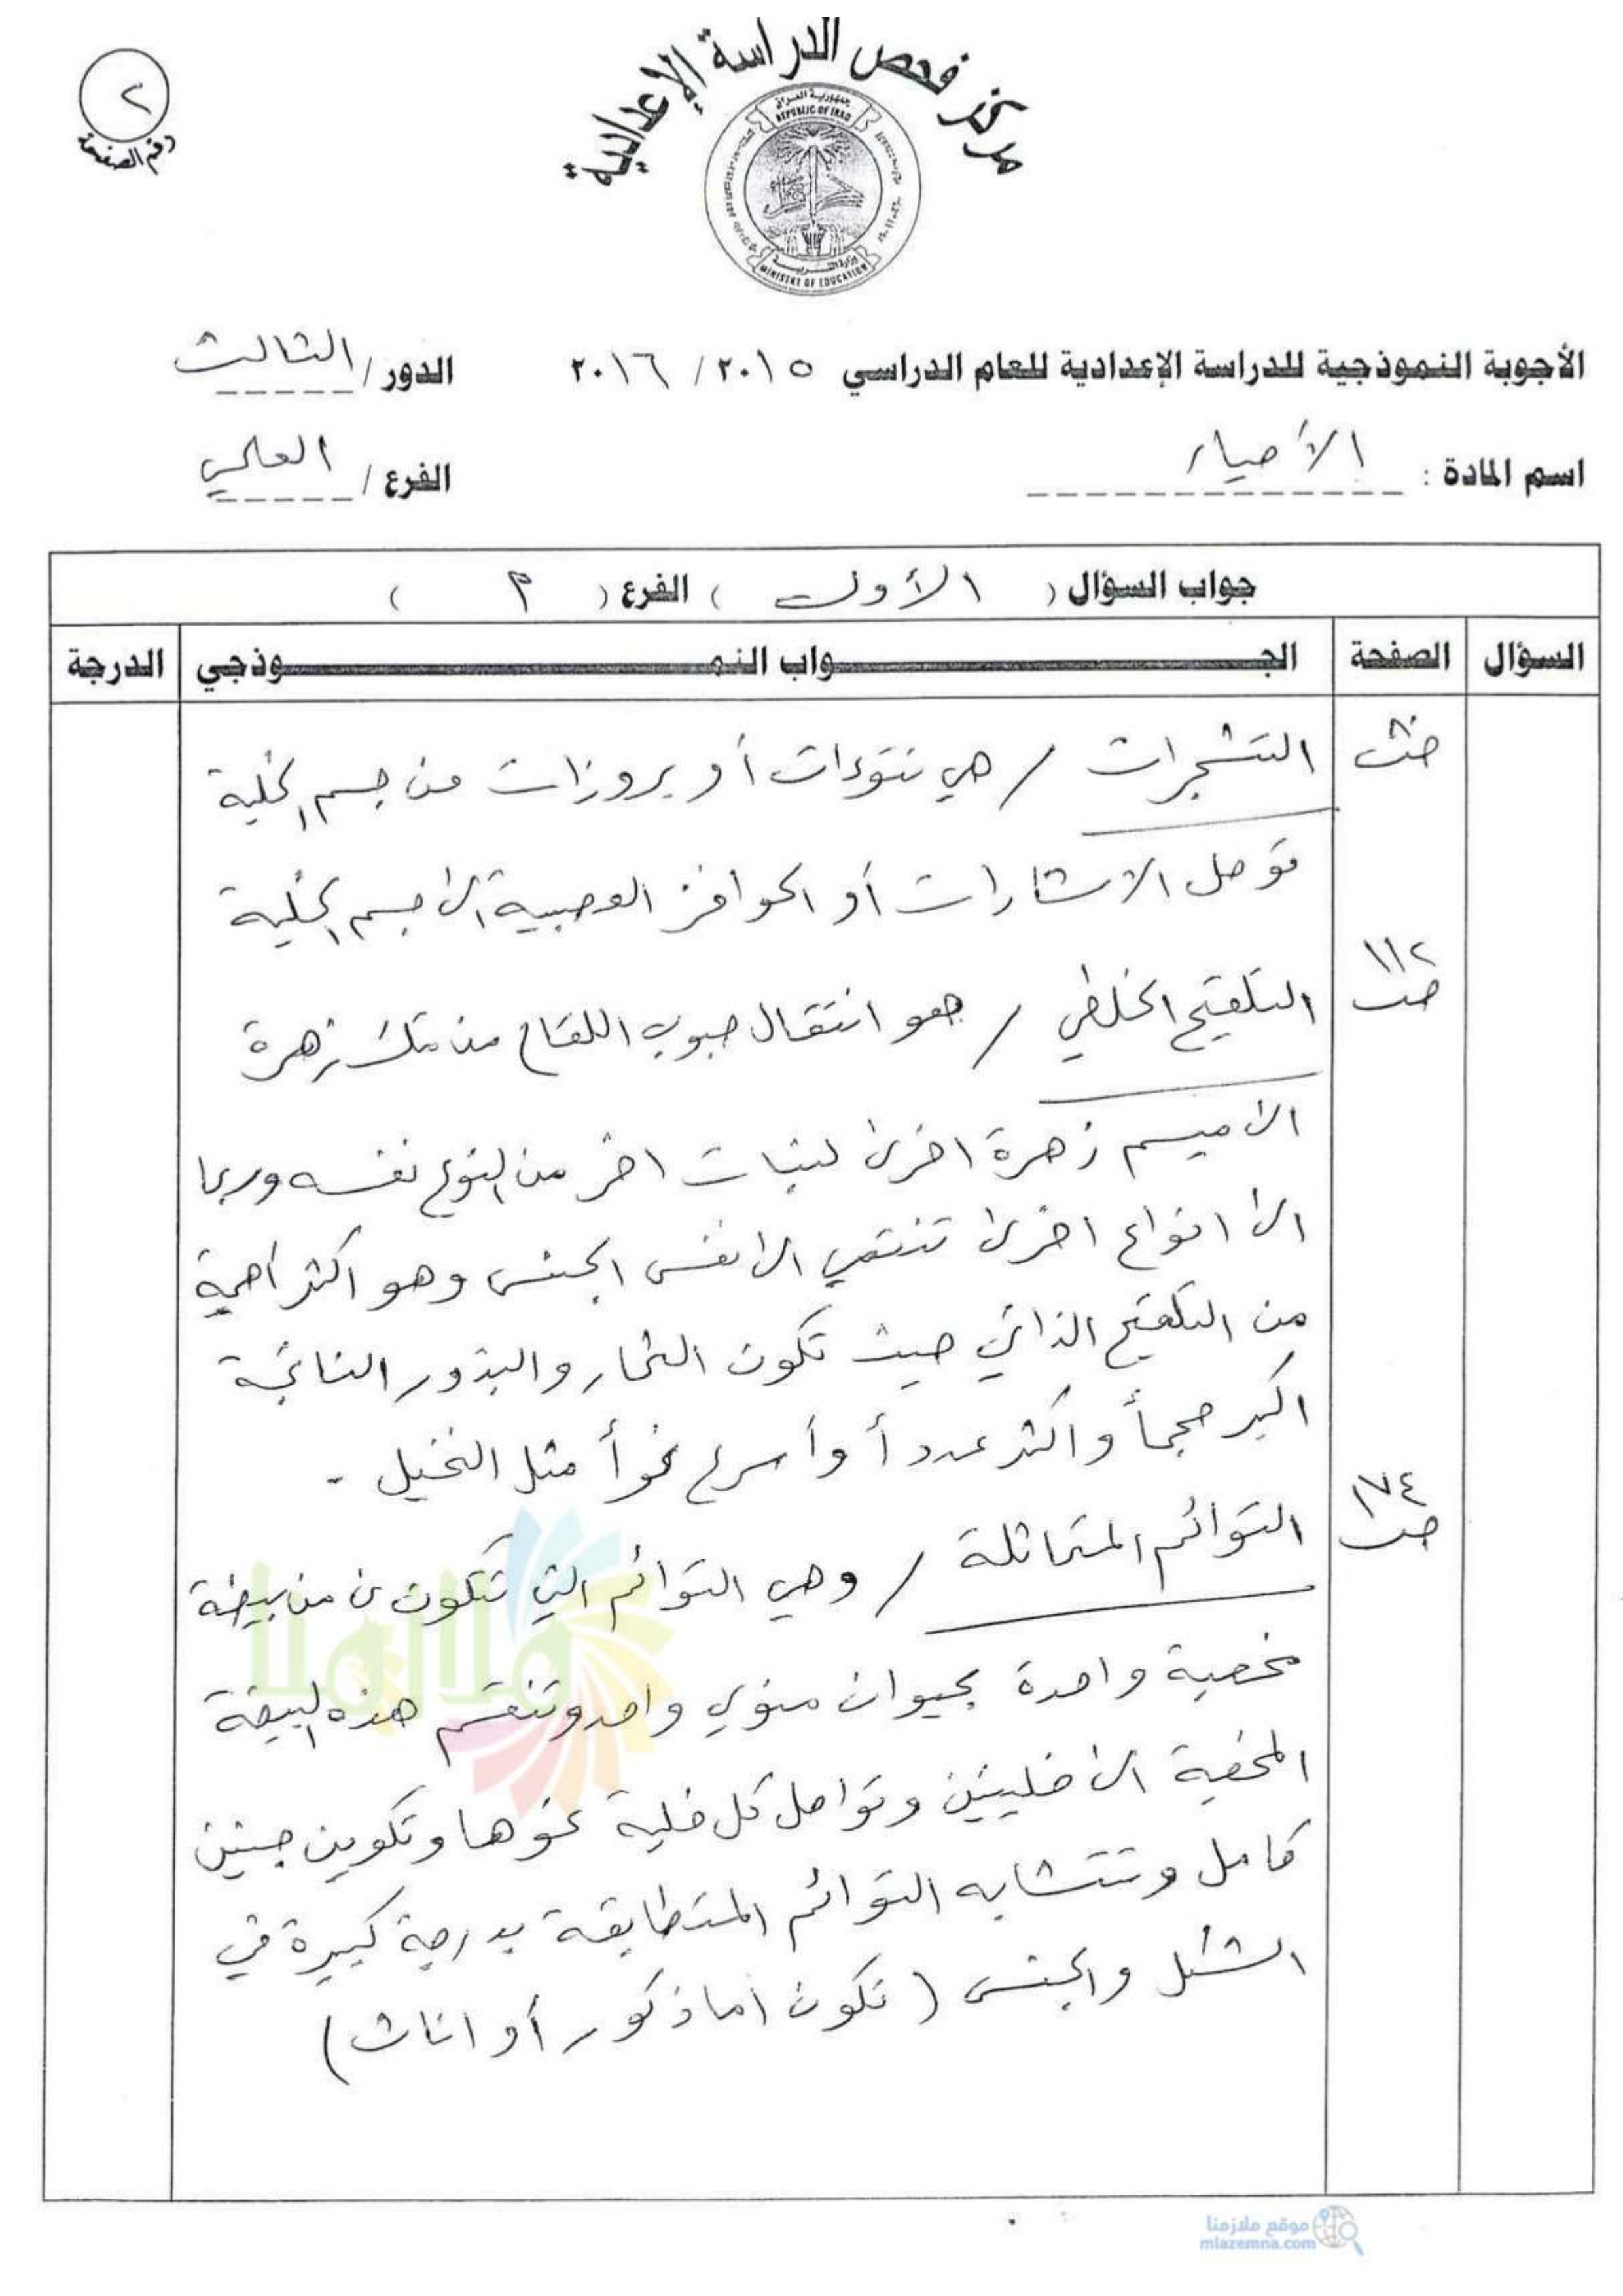 مركز فحص الدراسة الإعدادية
جمهورية العراق
REPUBLIC OF IRAQ
وزارة التربية
MINISTRY OF EDUCATION
٢
رقم الصفحة
الأجوبة النموذجية للدراسة الإعدادية للعام الدراسي ٢٠١٥ / ٢٠١٦ الدور / الثالث
اسم المادة : الأحياء الفرع / العلمي
جواب السؤال ( الأول ) الفرع ( م )
السؤال الصفحة الجـواب النمـوذجي الدرجة
التشجرات / هي نتوءات أو بروزات من جسم الخلية
توصل الاشارات أو الحوافز العصبية الى جسم الخلية
ص ١١٢
التلقيح الخلطي / هو انتقال حبوب اللقاح من متك زهرة
الى ميسم زهرة اخرى لنبات اخر من النوع نفسه وربما
الى انواع اخرى تنتمي الى نفس الجنس وهو اكثر أهمية
من التلقيح الذاتي حيث تكون الثمار والبذور الناتجة
اكبر حجماً واكثر عدداً وأسرع نمواً مثل النخيل .
ص ١٧٤
التوائم المتماثلة / وهي التوائم التي تتكون من بيضة
مخصبة واحدة بحيوان منوي واحد وتنقسم هذه البيضة
المخصبة الى خليتين وتواصل كل خلية نموها وتكوين جنين
كامل وتتشابه التوائم المتطابقة بدرجة كبيرة في
الشكل والجنس ( تكون اما ذكور أو اناث )
ملازمنا
موقع ملازمنا
mlazemna.com